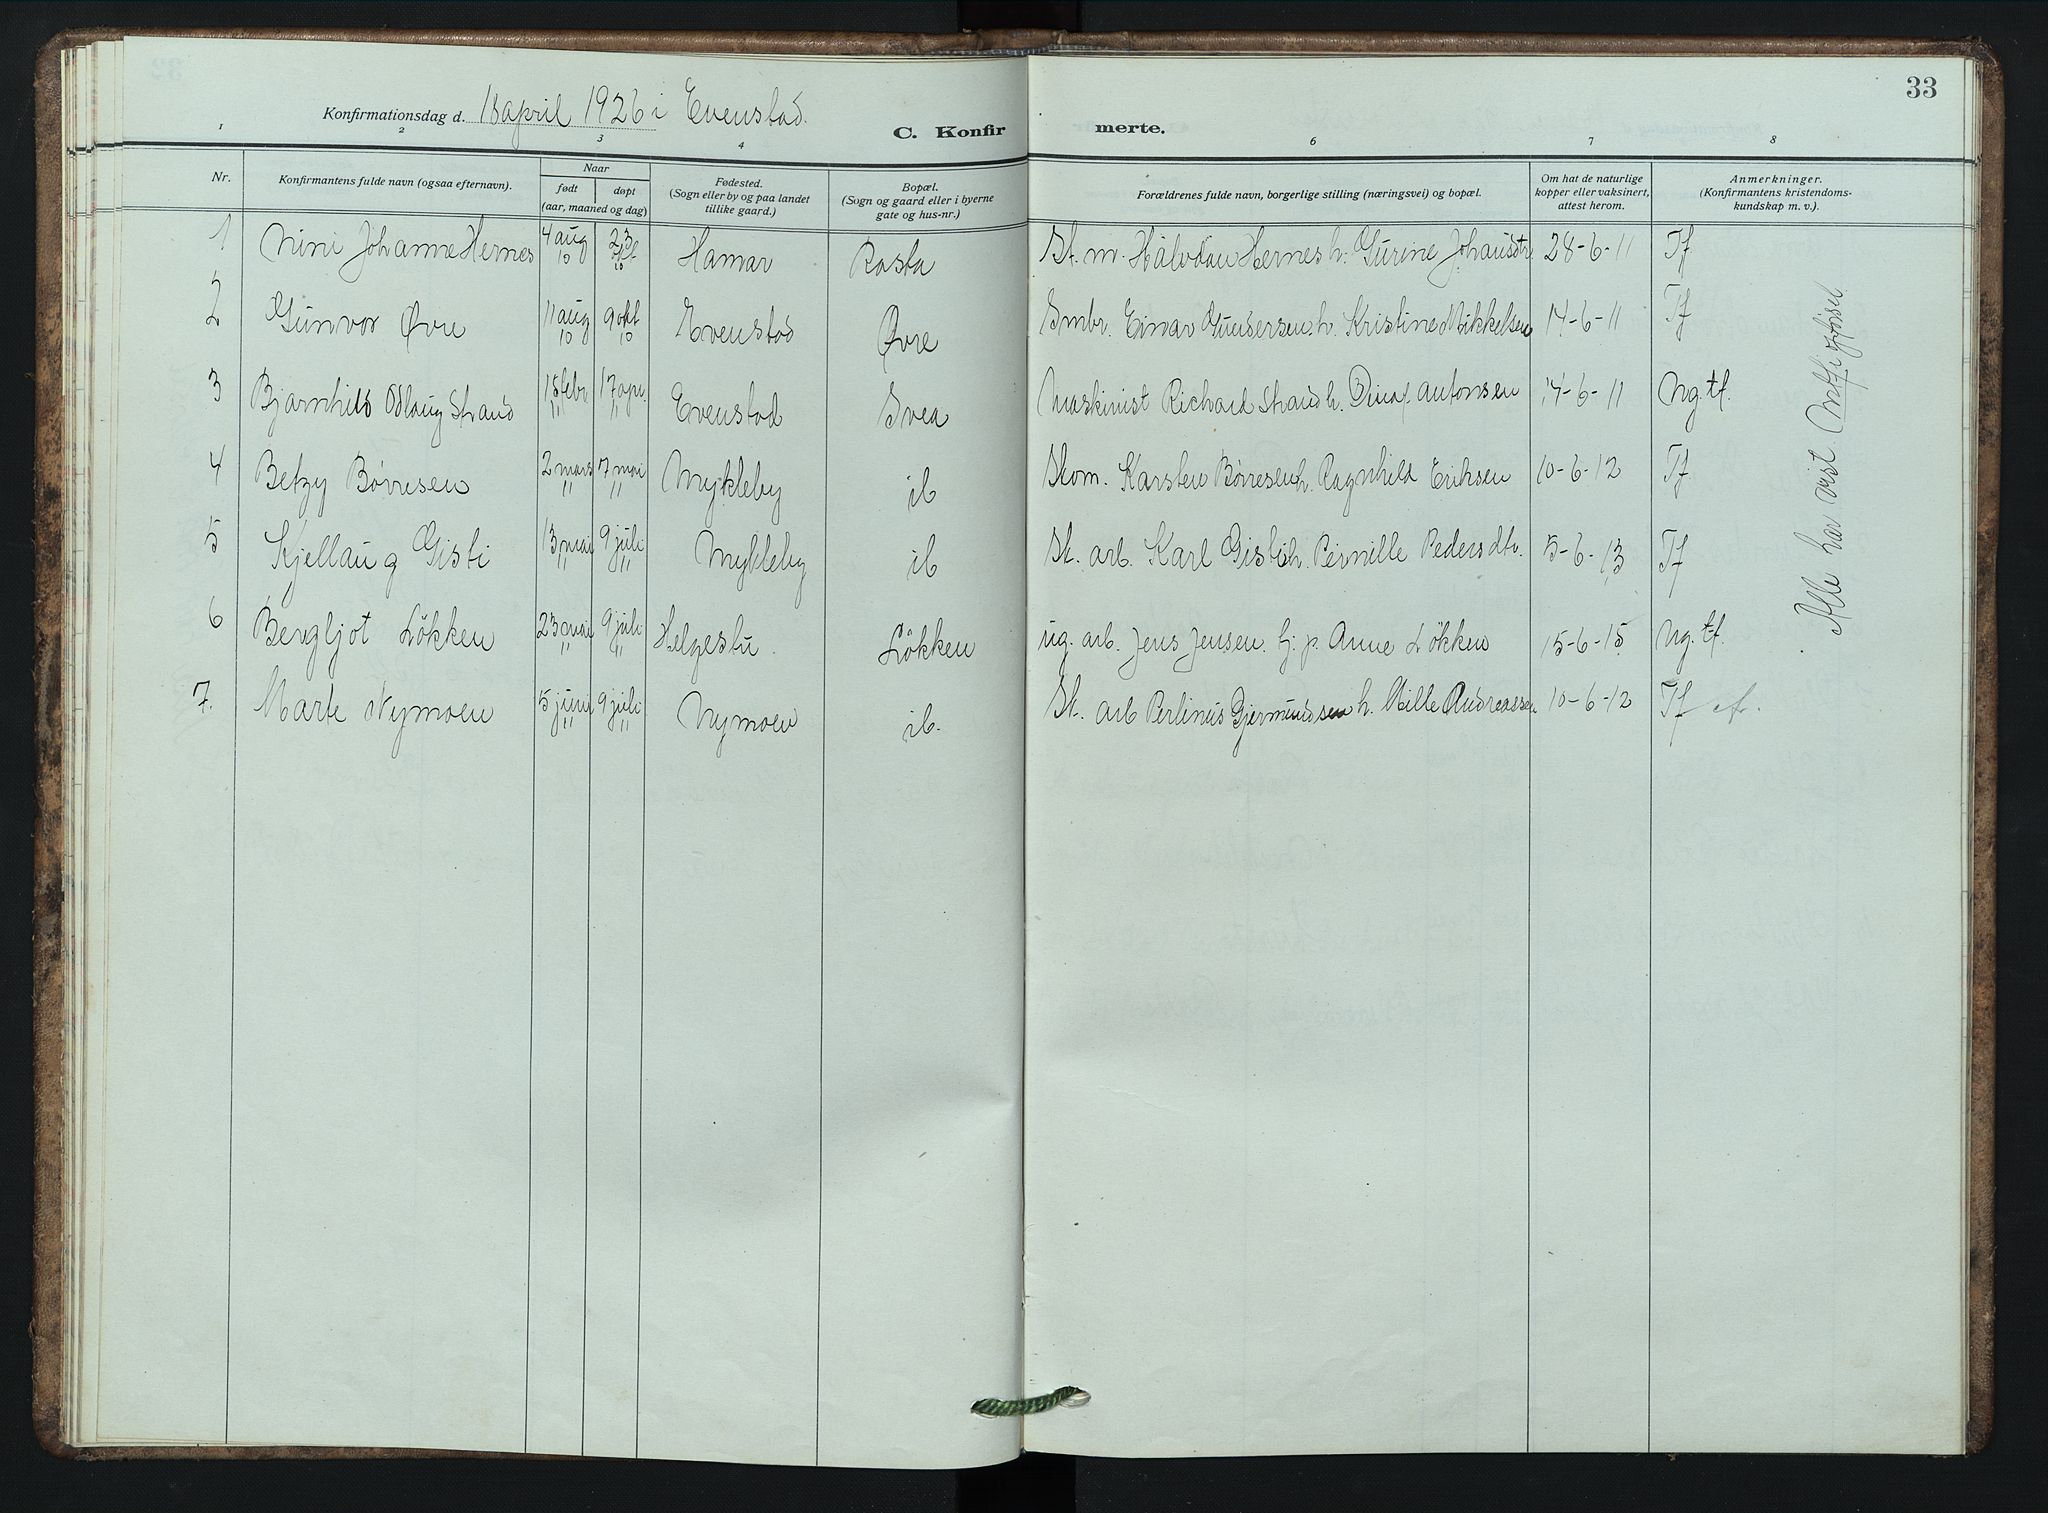 33
Konfirmationsdag d. 18 april 1926 i Evenstad.
C. Konfirmerte.
1 2 3 4 6 7 8
Nr. Konfirmantens fulde navn (ogsaa efternavn). Naar født døpt (aar, maaned og dag) Fødested. (Sogn eller by og paa landet tillike gaard.) Bopæl. (Sogn og gaard eller i byerne gate og hus-nr.) Forældrenes fulde navn, borgerlige stilling (næringsvei) og bopæl. Om hat de naturlige kopper eller vaksinert, attest herom. Anmerkninger. (Konfirmantens kristendomskundskap m. v.).
1 Nini Johanne Hernes 4 aug 10 23 okt 10 Hamar Rasta St. m. Halvdan Hernes h. Gurine Johansdtr 28-6-11 Tf
2 Gunvor Øvre 11 aug 10 9 okt 10 Evenstad Øvre Smbr. Einar Gundersen h. Kristine Mikkelsen 14-6-11 Tf
3 Bjarnhild Odlaug Strand 15 febr 11 17 apr. 11 Evenstad Svea Maskinist Richard Strand h. Dina f. Antonsen 14-6-11 Ng. tf.
4 Betzy Børresen 2 mars 11 7 mai 11 Mykleby ib Skom. Karsten Børresen h. Ragnhild Eriksen 10-6-12 Tf
5 Kjellaug Gisti 13 mai 11 9 juli 11 Mykleby ib Sk. arb. Karl Gisti h. Pernille Pedersdtr. 5-6-13 Tf
6 Bergljot Løkken 23 mai 11 9 juli 11 Helgestu. Løkken ug. arb. Jens Jensen hj. p. Anne Løkken 15-6-15 Ng. tf.
7. Marte Nymoen 5 juni 11 9 juli 11 Nymoen ib. Sk. arb Perlinus Gjermundsen h. Mille Andreassen 10-6-12 Tf
Alle har vist